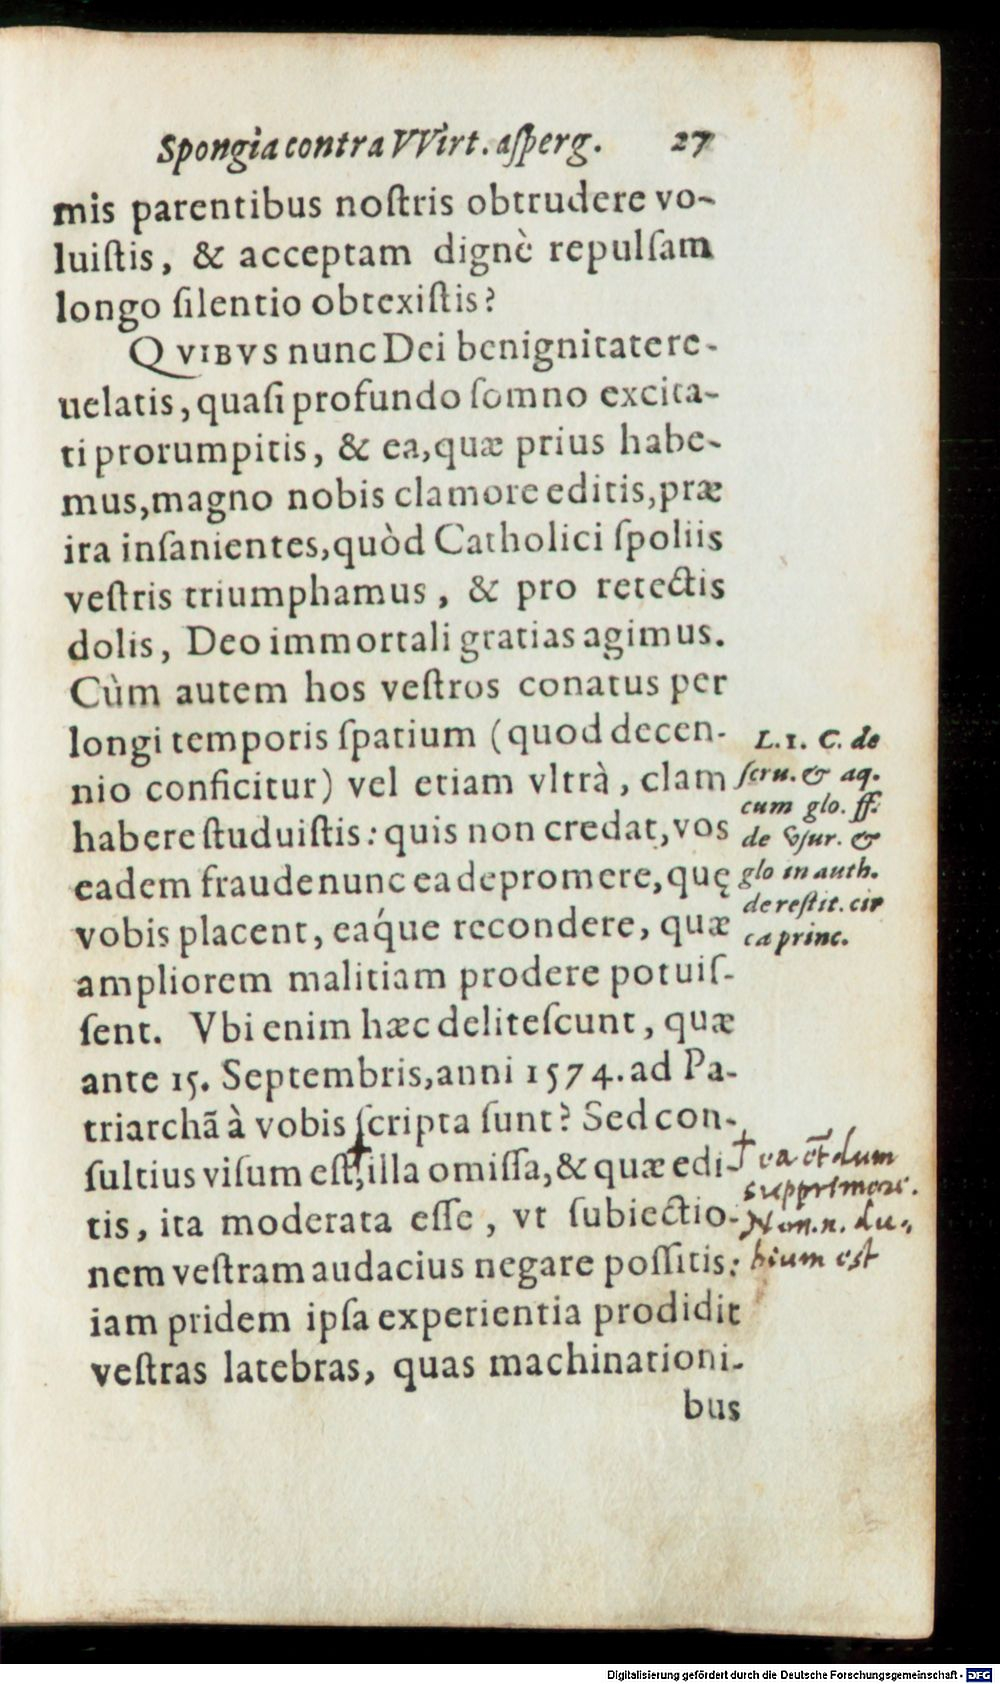 Spongia contra VVirt. aſperg. 27
mis parentibus noſtris obtrudere vo-
luiſtis, & acceptam dignè repulſam
longo ſilentio obtexiſtis?
QVIBVS nunc Dei benignitate re-
uelatis, quaſi profundo ſomno excita-
ti prorumpitis, & ea, quæ prius habe-
mus, magno nobis clamore editis, præ
ira inſanientes, quòd Catholici ſpoliis
veſtris triumphamus, & pro retectis
dolis, Deo immortali gratias agimus.
Cùm autem hos veſtros conatus per
longi temporis ſpatium (quod decen-
nio conficitur) vel etiam vltrà, clam
habere ſtuduiſtis: quis non credat, vos
eadem fraude nunc ea depromere, quę
vobis placent, eáque recondere, quæ
ampliorem malitiam prodere potuiſ-
ſent. Vbi enim hæc deliteſcunt, quæ
ante 15. Septembris, anni 1574. ad Pa-
triarchã à vobis ſcripta ſunt? Sed con-
ſultius viſum eſt, illa omiſſa, & quæ edi-
tis, ita moderata eſſe, vt ſubiectio-
nem veſtram audacius negare poſſitis:
iam pridem ipſa experientia prodidit
veſtras latebras, quas machinationi-
bus
L. 1. C. de
ſeru. & aq.
cum glo. ff.
de vſur. &
glo in auth.
de reſtit. cir
ca princ.
† ea
supprimere.
Non. n. du-
bium est
Digitalisierung gefördert durch die Deutsche Forschungsgemeinschaft - DFG